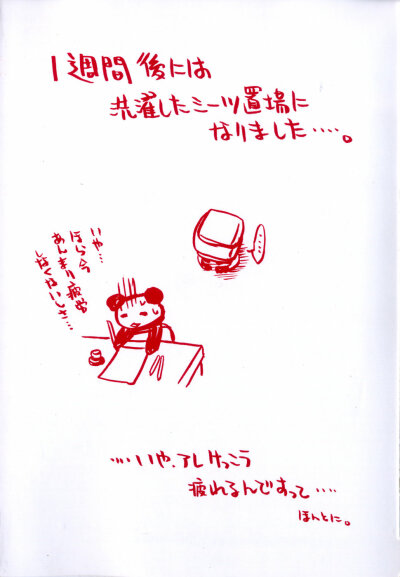 1週間後には
洗濯したシーツ置場に
なりました・・・・。
・・・・
いや…
ほら今
あんまり疲労
してないしさ…
・・・・いや、アレけっこう
疲れるんですって・・・・
ほんとに。